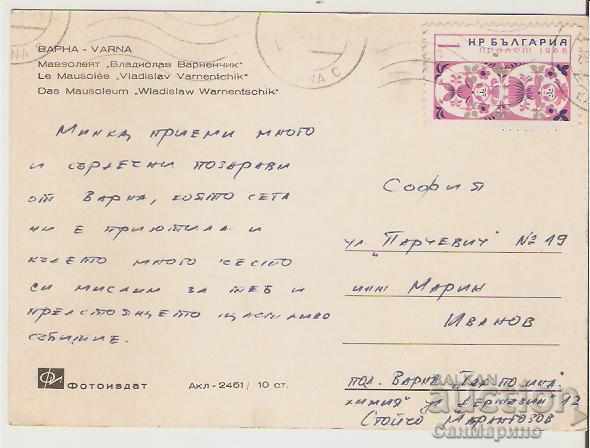 ВАРНА - VARNA
Мавзолеят „Владислав Варненчик"
Le Mausolée „Vladislav Varnentchik"
Das Mausoleum „Wladislaw Warnentschik"
НР БЪЛГАРИЯ
1
ПРОЛЕТ 1968
Минка, приеми много
и сърдечни поздрави
от Варна, която сега
ни е приютила и
където много често
си мислим за теб и
предстоящето щастливо
събитие.
София
ул. "Парчевич" № 19
инж Марин
Иванов
пол. Варна
химия" ул Державин 12
Стойчо
Фотоиздат
Акл-2461 / 10 ст.
BALKAN
auction
Санмарино